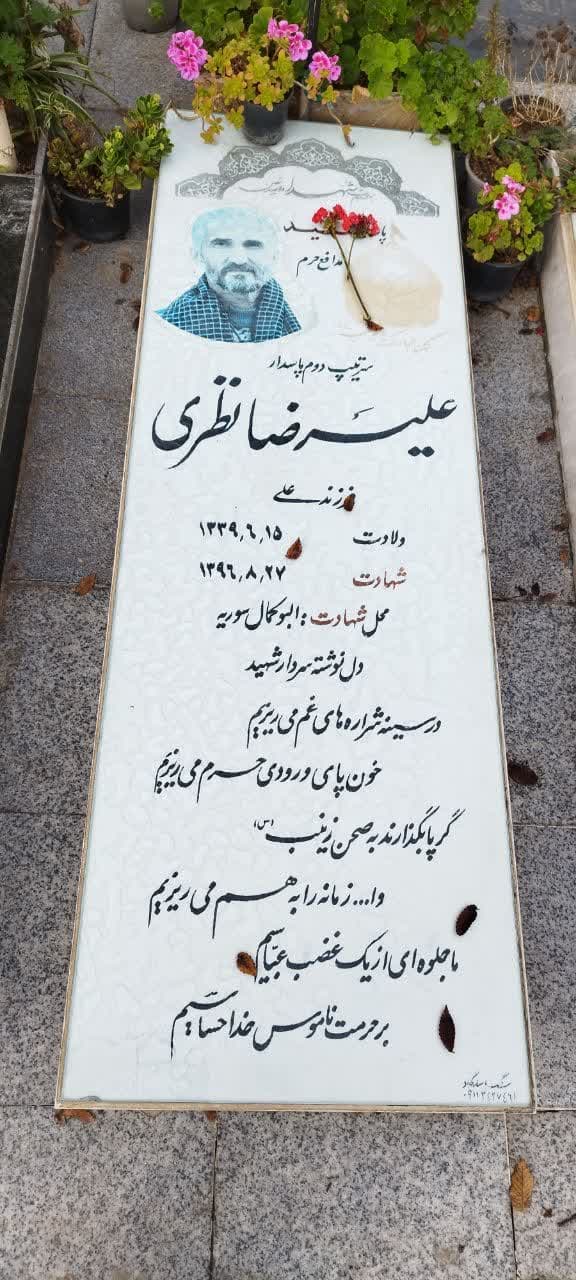 مدافع حرم
سرتیپ دوم پاسدار
علیرضا نظری
فرزند علی
ولادت ۱۳۳۹,۶,۱۵
شهادت ۱۳۹۶,۸,۲۷
محل شهادت : البوکمال سوریه
دل نوشته سردار شهید
در سینه شراره های غم می ریزیم
خون پای ورودی حرم می ریزیم
گر پا بگذارند به صحن زینب (س)
وا... زمانه را به هم می ریزیم
ما جلوه ای از یک غضب عباسیم
بر حرمت ناموس خدا حساسیم